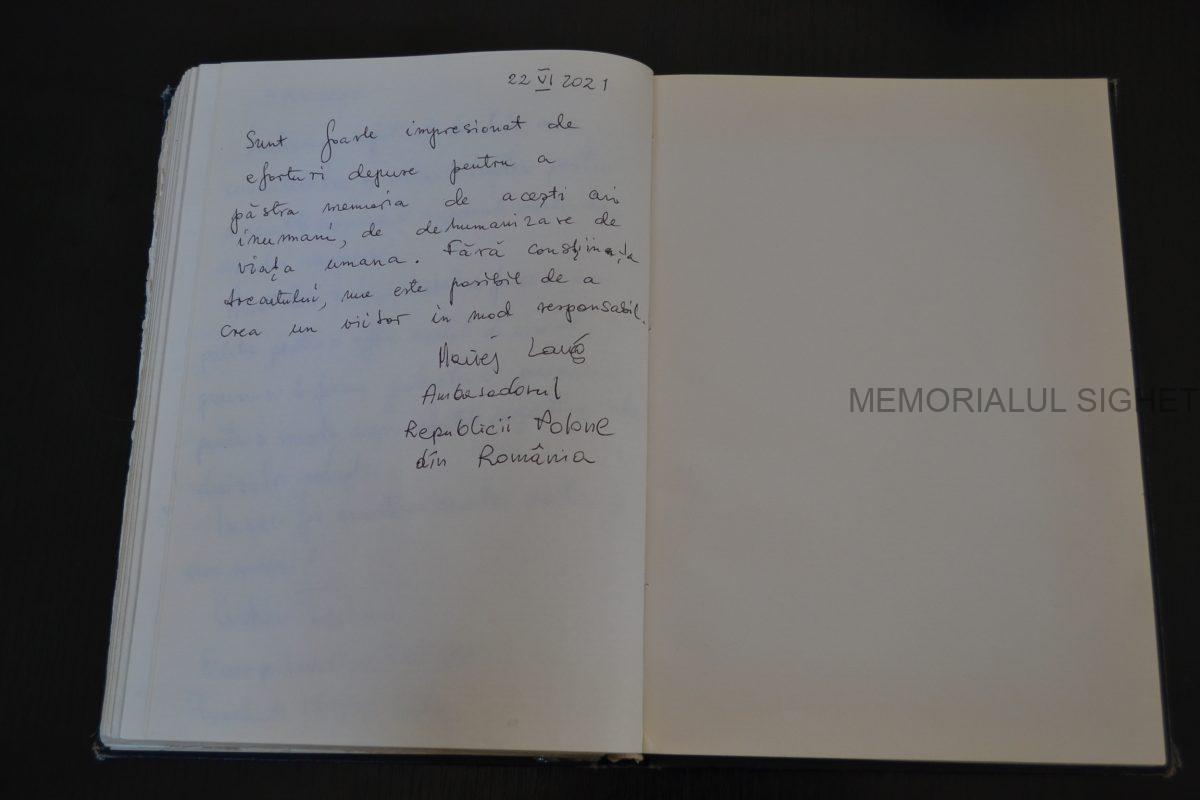 22 VI 2021
Sunt foarte impresionat de
eforturi depuse pentru a
păstra memoria de acești ani
inumani, de dehumanizare de
viața umana. Fără conștiința
trecutului, nu este posibil de a
crea un viitor in mod responsabil.
Ambasadorul
Republicii Polone
din România
MEMORIALUL SIGHET